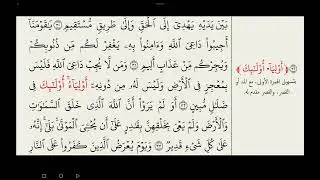 بَيْنَ يَدَيْهِ يَهْدِىٓ إِلَى ٱلْحَقِّ وَإِلَىٰ طَرِيقٍ مُّسْتَقِيمٍ
أَجِيبُوا۟ دَاعِىَ ٱللَّهِ وَءَامِنُوا۟ بِهِۦ يَغْفِرْ لَكُم مِّن ذُنُوبِكُمْ
وَيُجِرْكُم مِّنْ عَذَابٍ أَلِيمٍ وَمَن لَّا يُجِبْ دَاعِىَ ٱللَّهِ فَلَيْسَ
بِمُعْجِزٍ فِى ٱلْأَرْضِ وَلَيْسَ لَهُۥ مِن دُونِهِۦٓ أَوْلِيَآءُ أُو۟لَٰٓئِكَ فِى
ضَلَٰلٍ مُّبِينٍ أَوَلَمْ يَرَوْا۟ أَنَّ ٱللَّهَ ٱلَّذِى خَلَقَ ٱلسَّمَٰوَٰتِ
وَٱلْأَرْضَ وَلَمْ يَعْىَ بِخَلْقِهِنَّ بِقَٰدِرٍ عَلَىٰٓ أَن يُحْـِۧىَ ٱلْمَوْتَىٰ بَلَىٰٓ إِنَّهُۥ
عَلَىٰ كُلِّ شَىْءٍ قَدِيرٌ وَيَوْمَ يُعْرَضُ ٱلَّذِينَ كَفَرُوا۟ عَلَى ٱلنَّارِ
﴿أَوْلِيَآءُ أُو۟لَٰٓئِكَ﴾
بتسهيل الهمزة الأولى، مع المد أو
القصر، والقصر مقدم له.